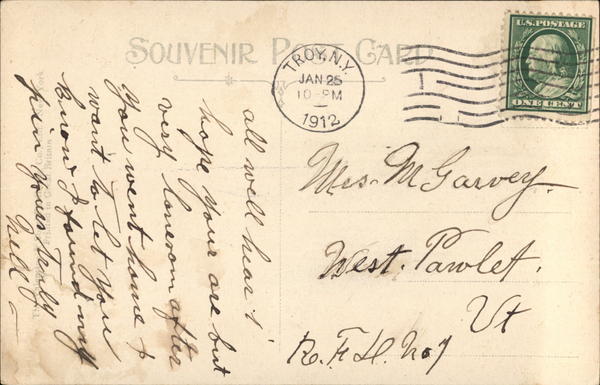 SOUVENIR POST CARD
TROY, N.Y.
JAN 25
10-PM
1912
U.S. POSTAGE
ONE CENT
all well hear &
hope your are but
very lonesom after
you went home &
want to let you
know I found my
pin yours truly
Nell
Mrs. M Garvey.
West. Pawlet.
Vt
R. F. D. No 1